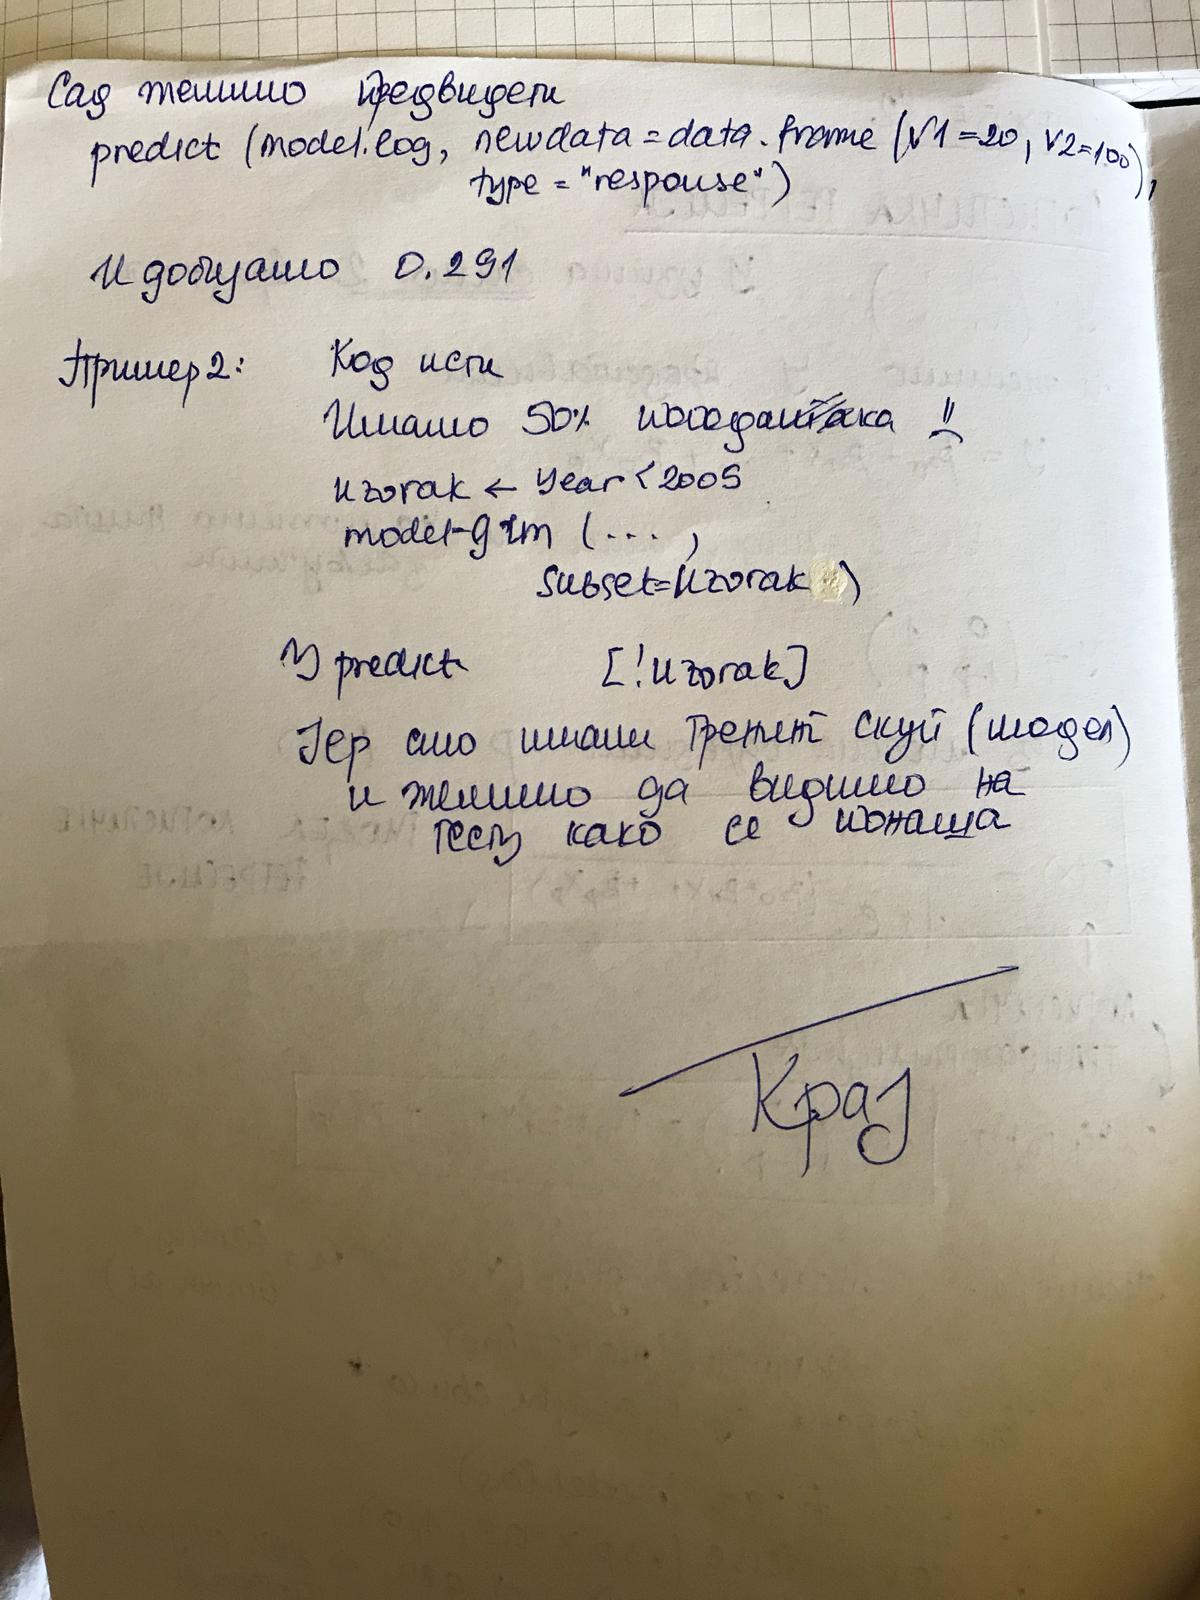 Сад желимо предвидети
predict (model.log, newdata = data.frame (V1=20, V2=100),
type = "response")
И добијамо 0.291
Пример 2: Код исти
Имамо 50% погодака !!
uzorak ← Year < 2005
model-glm (...,
subset=uzorak)
У predict [!uzorak]
Јер смо имали тренинг скуп (модел)
и желимо да видимо на
тесту како се понаша
Крај